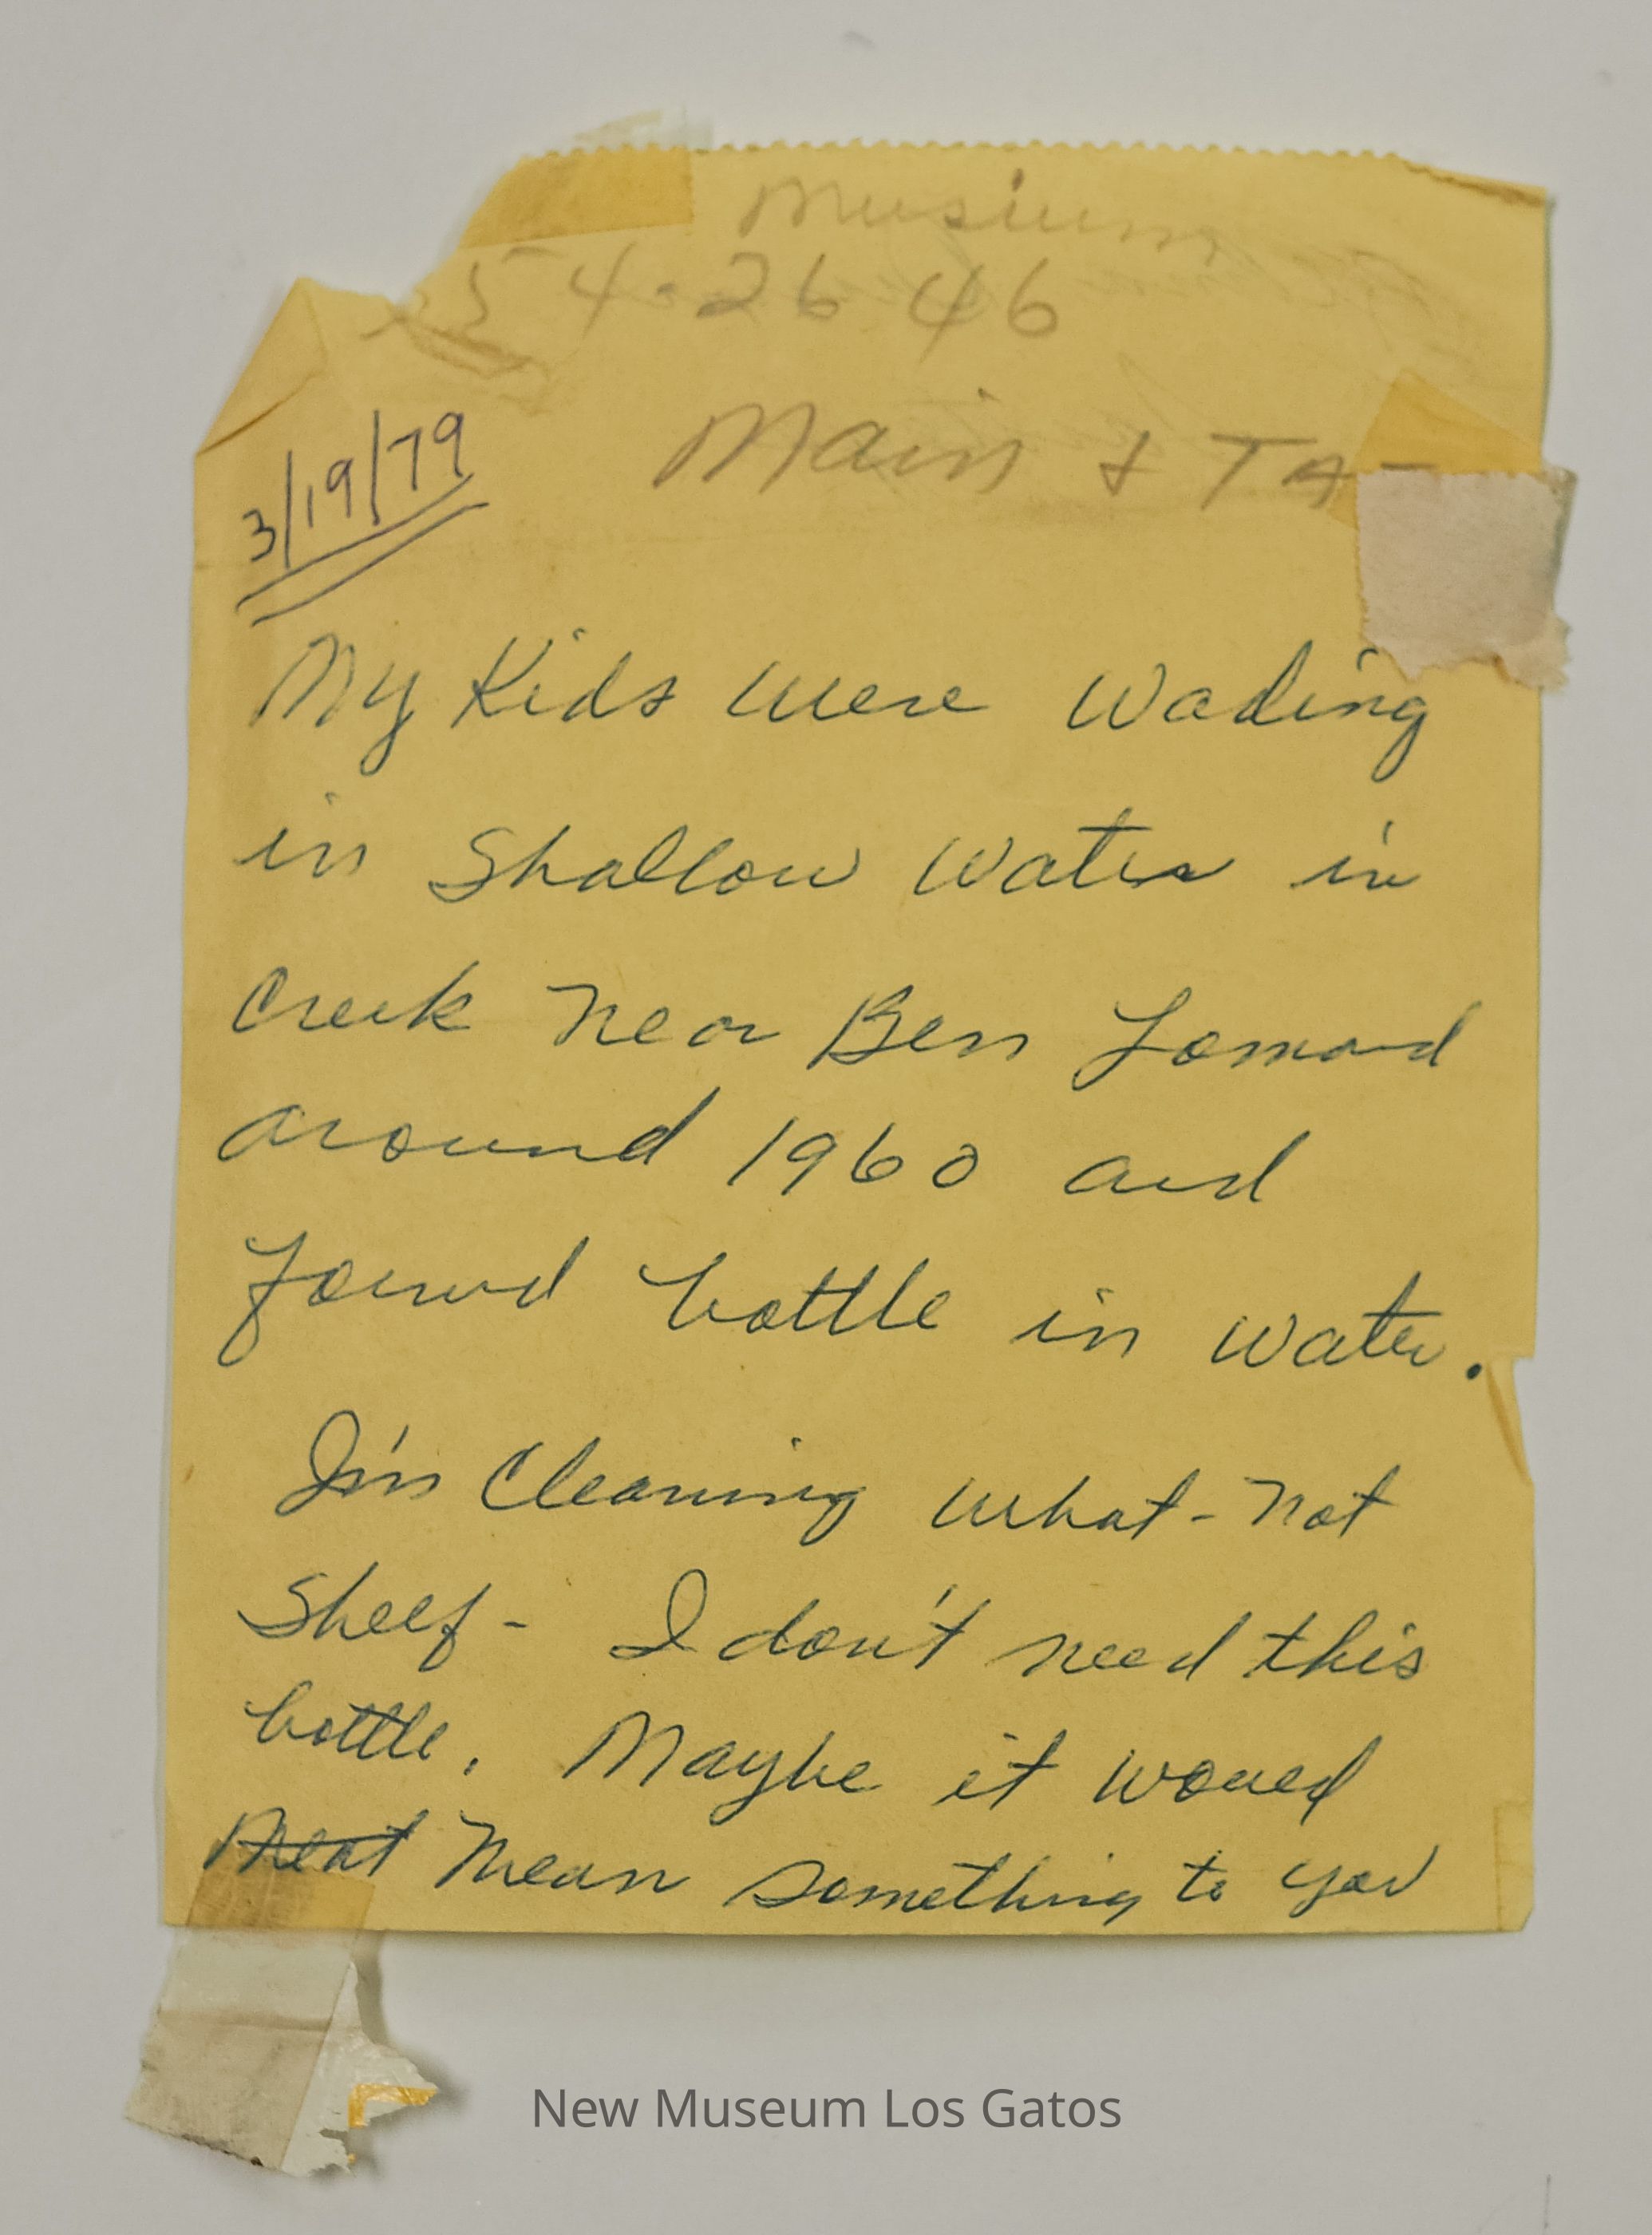 Musium
354-2646
Main & Ta
3/19/79
My Kids were wading
in Shallow Water in
Creek near Ben Lomond
around 1960 and
found bottle in water.
I'm Cleaning what-not
Shelf - I don't need this
bottle. Maybe it would
Meat Mean Something to you
New Museum Los Gatos